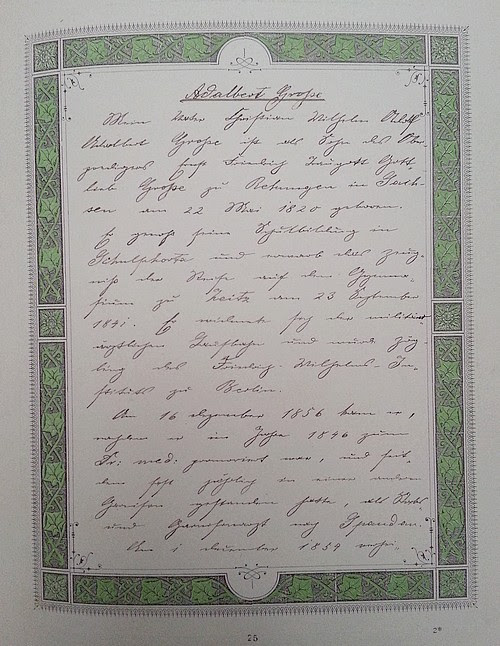 Adalbert Große
Mein Vater Christian Wilhelm
Adalbert Große ist als Sohn des Ober-
predigers Friedrich Gott-
lieb Große zu in Sach-
sen am 22 Mai 1820 geboren.
Er genoß seine Schulbildung in
Schulpforta und erwarb das Zeug-
niß der Reife auf dem Gymna-
sium zu Zeitz am 23 September
1841. Er widmete sich der militär-
ärztlichen Laufbahn und wurde Zög-
ling des Friedrich-Wilhelms-In-
stituts zu Berlin.
Am 16 dezember 1856 kam er,
nachdem er im Jahre 1846 zum
Dr: med: promovirt war, und seit-
dem fast in einer andern
Garnison gestanden hatte, als Stabs-
und Garnisonarzt nach Spandau.
Am 1 1859
25
2*